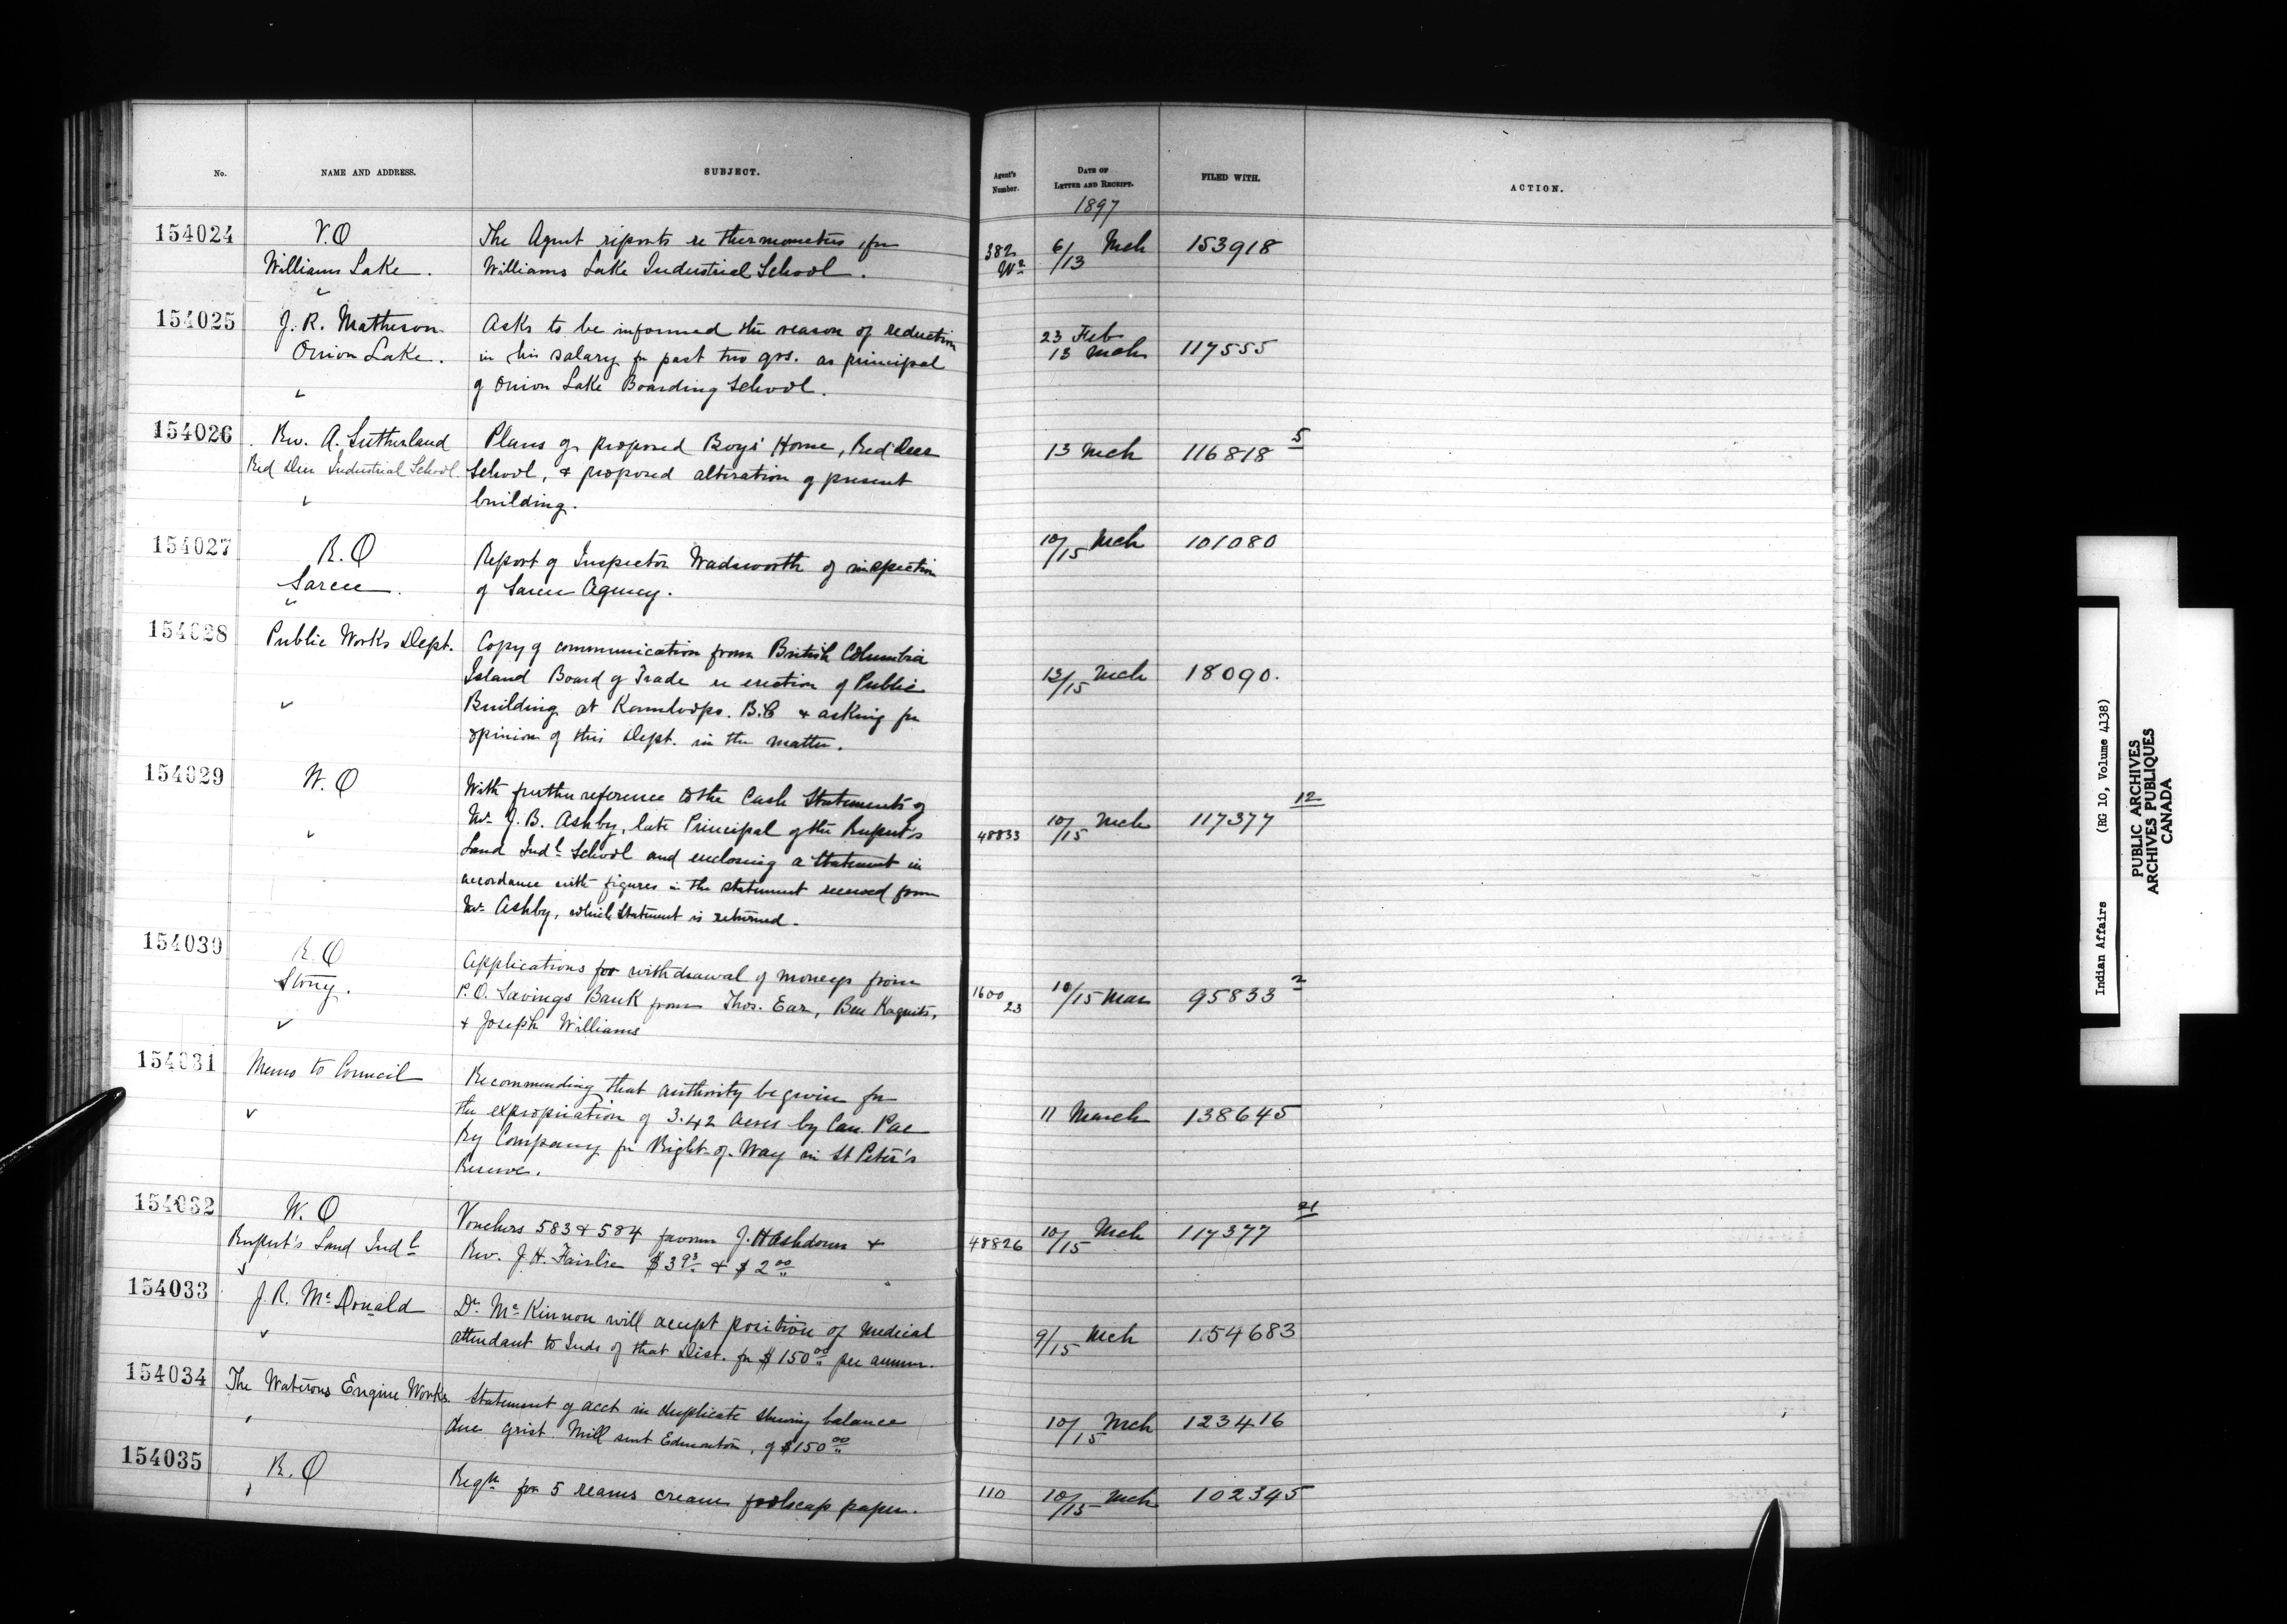 No. NAME AND ADDRESS. SUBJECT. Agent's Number. DATE OF LETTER AND RECEIPT. FILED WITH. ACTION.
1897
154024 V.O The Agent reports re thermometers for 382 6/ Mch 153918
Williams Lake. Williams Lake Industrial School. /13
154025 J. R. Matheson Asks to be informed the reason of reduction 23 Feb
Onion Lake. in his salary for past two qrs. as principal 13 Mch 117555
of Onion Lake Boarding School.
154026 Rev. A. Sutherland Plans of proposed Boys' Home, Red Deer 13 Mch 116818 5
Red Deer Industrial School School, & proposed alteration of present
building.
154027 R.O Report of Inspector Wadsworth of inspection 10/15 Mch 101080
Sarcee. of Sarcee Agency.
154028 Public Works Dept. Copy of communication from British Columbia
Island Board of Trade re erection of Public 13/15 Mch 18090.
Building at Kamloops. B.C & asking for
opinion of this Dept. in the matter.
154029 W.O With further reference to the Cash Statements of 12
Mr J. B. Ashby, late Principal of the Rupert's 48833 10/15 Mch 117377
Land Indl School and enclosing a statement in
accordance with figures in the statement received from
Mr Ashby, which statement is returned.
154030 R.O Applications for withdrawal of moneys from
Stony. P.O. Savings Bank from Thos. Ear, Ben 1600 23 10/15 Mar 95833 2
& Joseph Williams
154031 Memo to Council Recommending that authority be given for
the expropriation of 3.42 acres by Can Pac 11 March 138645
Ry Company for Right-of-Way in St Peter's
Reserve.
154032 W.O Vouchers 583 & 584 favour J. H Ashdown & 48826 10/15 Mch 117377 21
Rupert's Land Indl Rev. J. H. Fairlie $3 93 & $2 00
154033 J. R. McDonald Dr McKinnon will accept position of Medical 9/15 Mch 154683
attendant to Inds of that Dist. for $150 00 per annum.
154034 The Waterous Engine Works Statement of acct in duplicate shewing balance 10/15 Mch 123416
due grist Mill sent Edmonton, of $150 00
154035 R.O Reqn for 5 reams cream foolscap paper. 110 10/15 Mch 102345
Indian Affairs (RG 10, Volume 4138)
PUBLIC ARCHIVES
ARCHIVES PUBLIQUES
CANADA